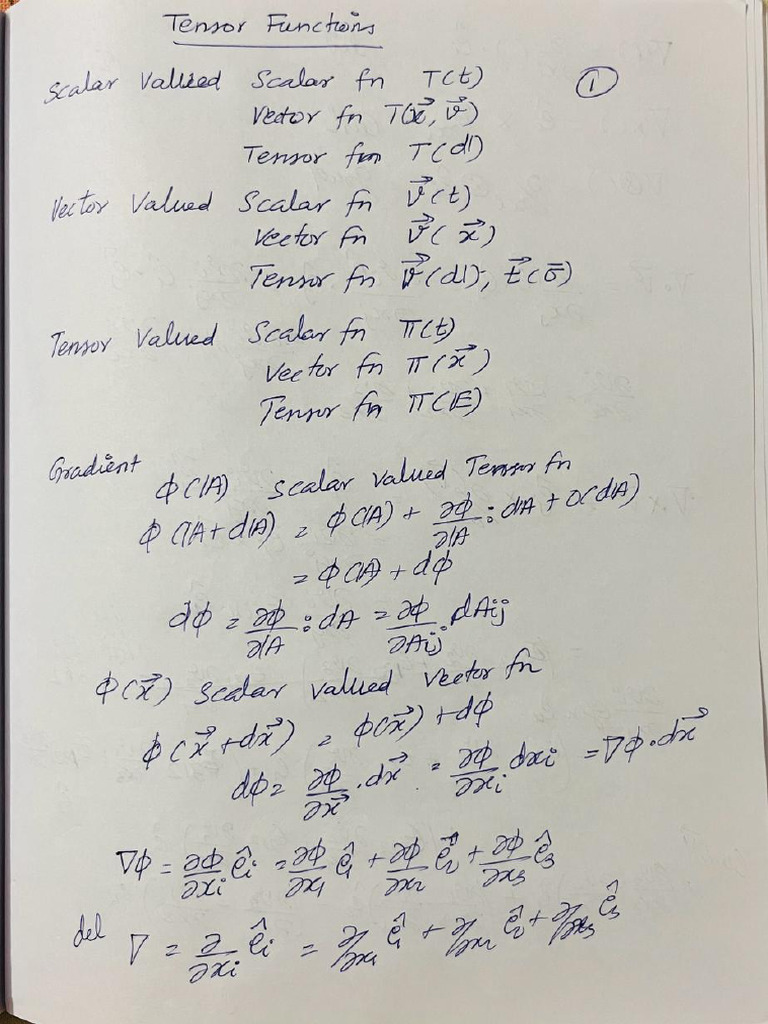 Tensor Functions
Scalar Valued Scalar fn T(t) ①
Vector fn T(x⃗, v⃗)
Tensor fn T(𝔸)
Vector Valued Scalar fn v⃗(t)
Vector fn v⃗(x⃗)
Tensor fn v⃗(𝔸), t⃗(σ̄)
Tensor Valued Scalar fn Π(t)
Vector fn Π(x⃗)
Tensor fn Π(𝔼)
Gradient
ϕ(𝔸) Scalar valued Tensor fn
ϕ(𝔸+d𝔸) = ϕ(𝔸) + ∂ϕ/∂𝔸 : d𝔸 + O(d𝔸)
= ϕ(𝔸) + dϕ
dϕ = ∂ϕ/∂𝔸 : d𝔸 = ∂ϕ/∂Aij dAij
ϕ(x⃗) Scalar valued Vector fn
ϕ(x⃗+dx⃗) = ϕ(x⃗) + dϕ
dϕ = ∂ϕ/∂x⃗ · dx⃗ = ∂ϕ/∂xi dxi = ∇ϕ·dx⃗
∇ϕ = ∂ϕ/∂xi êi = ∂ϕ/∂x1 ê1 + ∂ϕ/∂x2 ê2 + ∂ϕ/∂x3 ê3
del ∇ = ∂/∂xi êi = ∂/∂x1 ê1 + ∂/∂x2 ê2 + ∂/∂x3 ê3